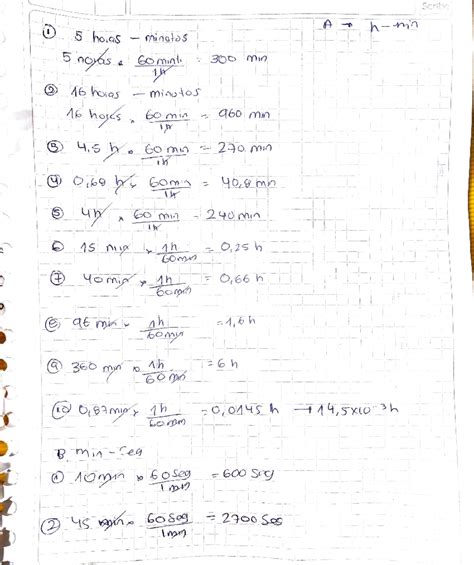 Scribe
A → h - min
① 5 horas - minutos
5 horas * 60 min / 1h = 300 min
② 16 horas - minutos
16 horas . 60 min / 1h = 960 min
③ 4,5 h * 60 min / 1h = 270 min
④ 0,68 h * 60 min / 1h = 40,8 min
⑤ 4h * 60 min / 1h = 240 min
⑥ 15 min * 1h / 60 min = 0,25 h
⑦ 40 min * 1h / 60 min = 0,66 h
⑧ 96 min * 1h / 60 min = 1,6 h
⑨ 360 min * 1h / 60 min = 6 h
⑩ 0,87 min * 1h / 60 min = 0,0145 h → 14,5x10⁻³h
B. min - seg
① 10 min * 60 seg / 1 min = 600 seg
② 45 min * 60 seg / 1 min = 2700 seg